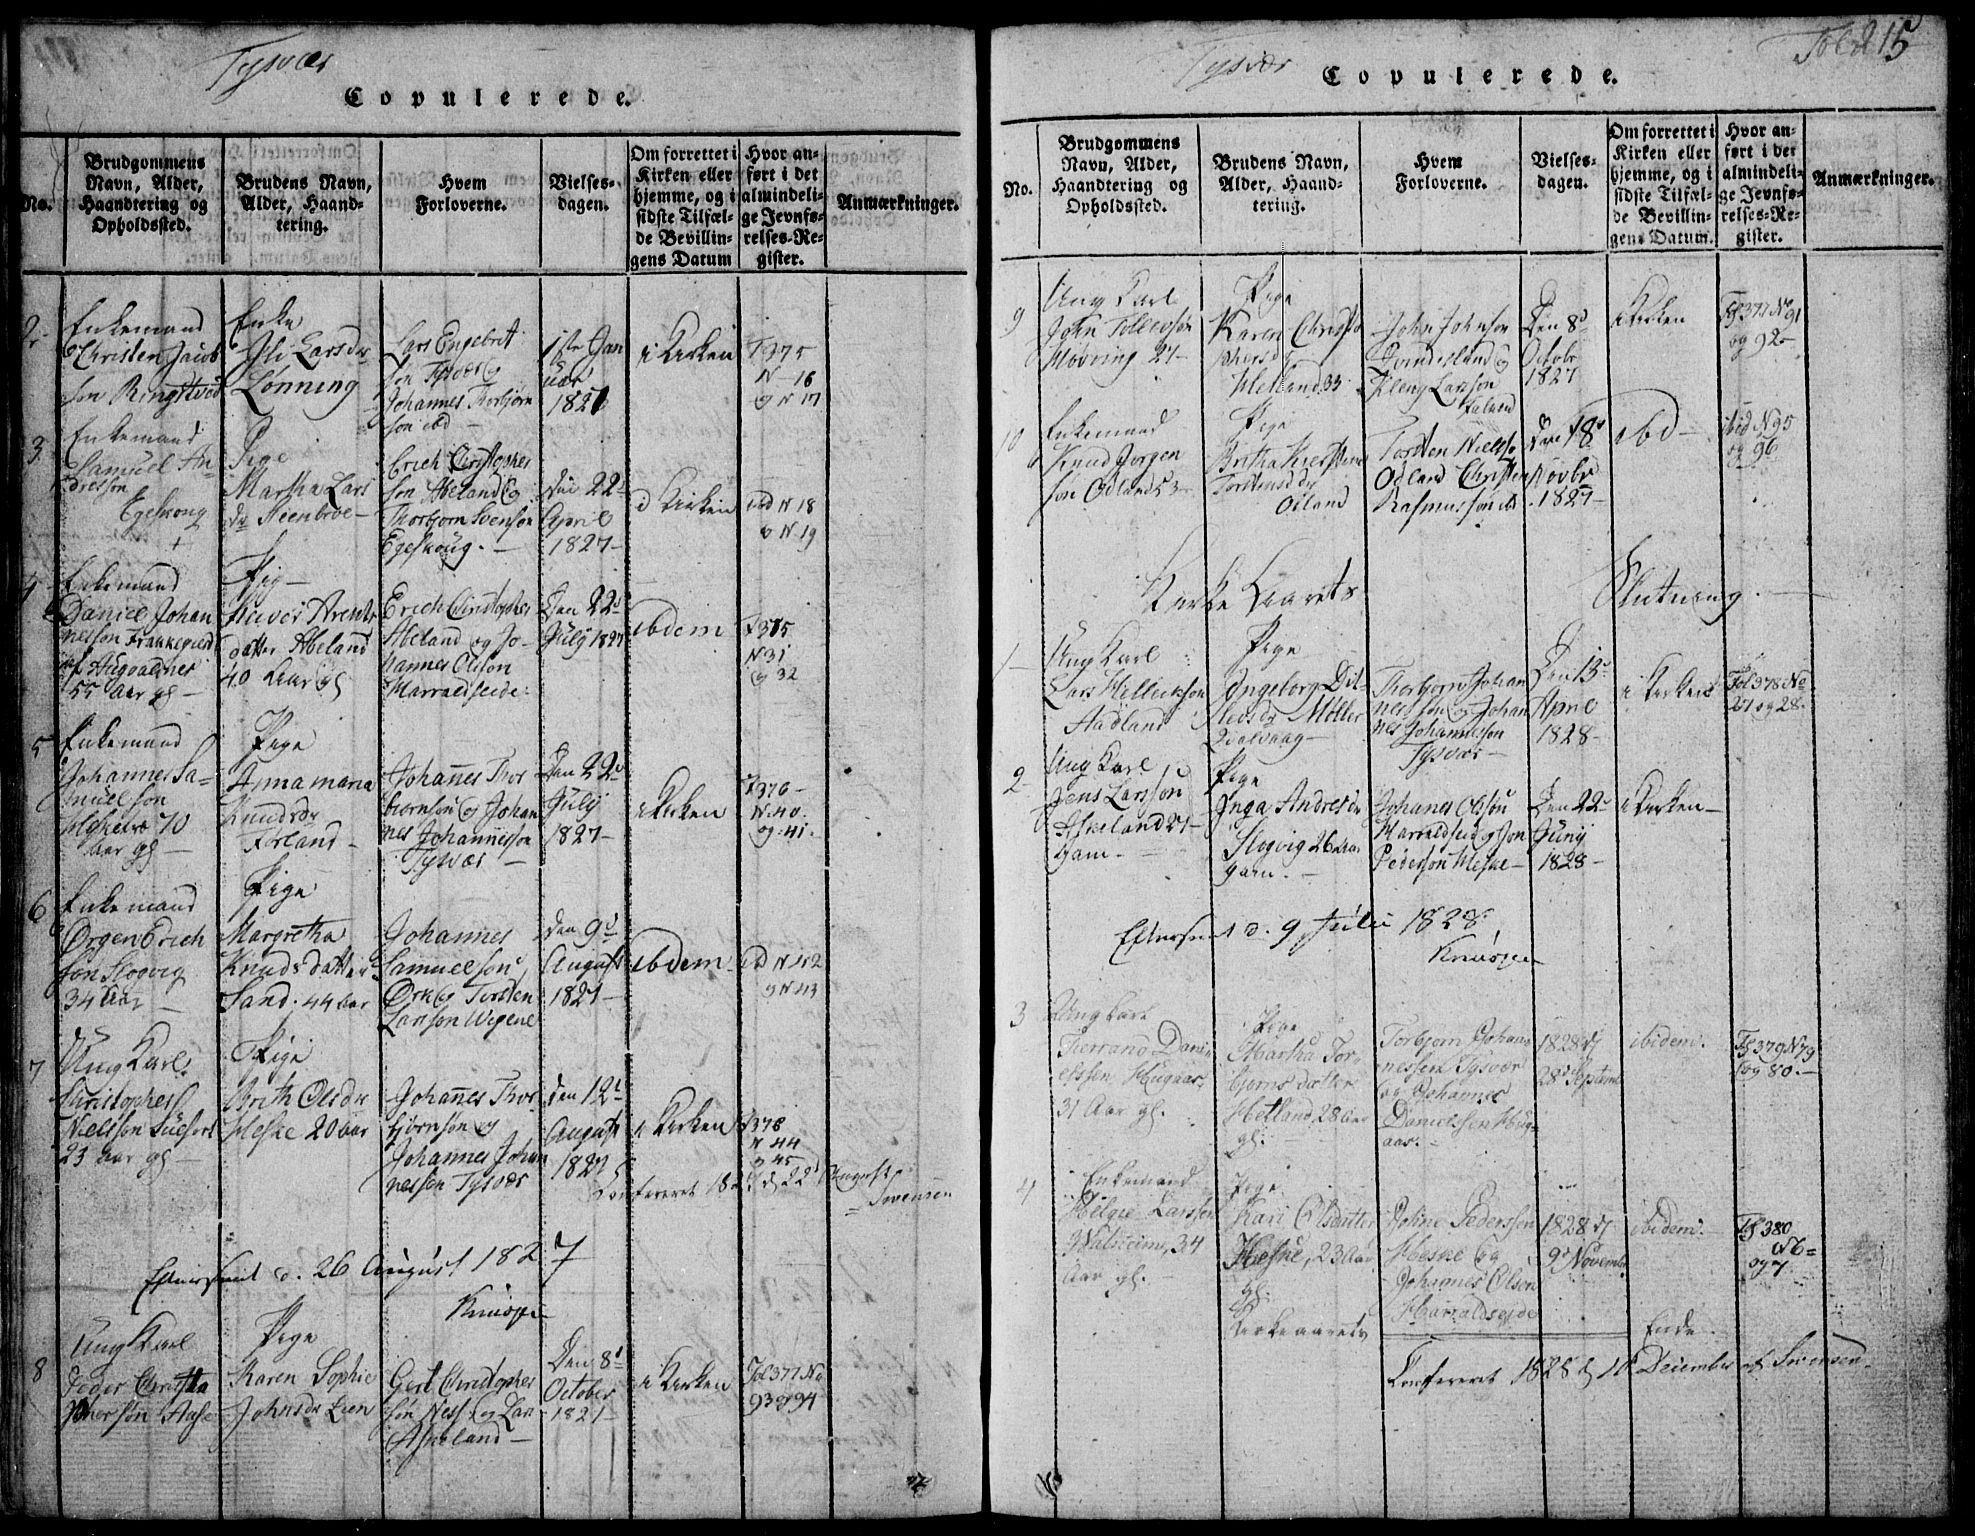 Tysvær
Copulerede.
No.
Brudgommens
Navn, Alder,
Haandtering og
Opholdssted.
Brudens Navn,
Alder, Haand-
tering.
Hvem
Forloverne.
Vielses-
dagen.
Om forrettet i
Kirken eller
hjemme, og i
sidste Tilfæl-
de Bevillin-
gens Datum
Hvor an-
ført i det
almindeli-
ge Jevnfø-
relses-Re-
gister.
Anmærkninger.
2
Enkemand
Christen Jacob
søn Ringstved
Enke
Larsdr
Lønning
Lars Engebrit
søn Tysvær og
Johannes Thorbjørn
søn ibd
1ste Jan
uar
1827
i Kirken
F 375
N 16
og N 17
3
Enkemand
Samuel An
dreson
Egeskoug
Pige
Martha Lars
dr Steenbroe
Erich Christopher
søn Abeland og
Thorbjørn Svensøn
Egeskoug.
Den 22
April
1827
i Kirken
ibd N 18
og N 19
4
Enkemand
Daniel Johan
nesson Frakkegierd
af Augvaldnes
55 Aar gl
Pige
Arents
datter Abeland
40 Aar gl
Erich Christopher
Abeland og Jo-
hannes Olson
Marraldseide
Den 22d
July 1827
ibdem
F 375
N 31
og 32
5
Enkemand
Johannes Sa-
muelson
70
Aar gl
Pige
Anna maria
Knudsdr
Førland
Johannes Thor
biørnsøn og Johan
nes Johannesson
Tysvær
Den 22d
July
1827
i Kirken
F 376
N. 40.
og. 41.
6
Enkemand
Ørgen Erich
søn Slogvig
34 Aar
Pige
Margretha
Knudsdatter
Sand. 44 Aar
Johannes
Samuelsøn
Ørke og Torsten
Larsson Wegene
Den 9d
August
1827
ibdem
ibd N 42
og N 43
7
Ung Karl
Christopher
Nielsson
23 Aar gl
Pige
Brith Olsdr
Heske 20 Aar
Johannes Thor
bjørnsøn og
Johannes Johan
nesson Tysvær
Den 12t
August
1827
i Kirken
F 376
N 44
og 45
Confereret 1827 d 22 August
Svensen
Efterseet d. 26 August 1827
8
Ung Karl
Peder Christo
phersøn Aase
Pige
Karen Sophie
Johnsdr Lien
Gert Christopher
søn Ness og Lar
Askeland
Den 8d
October
1827
i Kirken
Fol 377 No
93 og 94
Tysvær
Fol 215
Copulerede.
No.
Brudgommens
Navn, Alder,
Haandtering og
Opholdssted.
Brudens Navn,
Alder, Haand-
tering.
Hvem
Forloverne.
Vielses-
dagen.
Om forrettet i
Kirken eller
hjemme, og i
sidste Tilfæl-
de Bevillin-
gens Datum.
Hvor an-
ført i det
almindeli-
ge Jevnfø-
relses-Re-
gister.
Anmærkninger.
9
Ung Karl
John Tollevsøn
Møvring 27
Pige
Karen Christo
phersdr
Hetland 33
John Johnson
og
Larsson
Den 8d
Octobr
1827
i Kirken
Fol 377 N 91
og 92
10
Enkemand
Knud Jørgen
søn Odland 53
Pige
Britha
Torstensdr
Odland
Torsten Nielsø
Odland Christen
Rasmussøn ibd
Den 18d
Novbr
1827
ibd
ibid N 95
og 96
Kirke Aarets
Slutning.
1
Ung Karl
Lars Hellicksøn
Aadland
Pige
Ingeborg Dit-
levsdr Møller
Qvalvaag
Thorbjørn Johan
nessøn og Johan
nes Johannesson
Tysvær
Den 13d
April
1828
i Kirken
Fol 378 No
27 og 28.
2
Ung Karl
Jens Larssøn
Askeland 27
gam
Pige
Inga Andresdr
Slogvig 26 Aar
gam.
Johanes Olsøn
Marraldseid og Jon
Pedersøn Heske
Den 22d
Juny
1828
i Kirken
Efterseet d. 9 Julii 1828
3
Ung Karl
Dani-
elssen Hugaas
31 Aar gl.
Pige
Martha Tor-
bjørnsdatter
Hetland, 28 Aar
gl.
Torbjørn Johan-
nessen Tysvær
og Johannes
Danielssen Hug-
aas.
1828 d
28d Septemb
ibidem.
Fol 379 N 79
og 80.
4
Enkemand
Helge Larssen
34
Aar gl.
Pige
Kari Olsdatter
Heske, 23 Aar
gl.
Johne Pederssen
Heske og
Johannes Olsen
Marraldseide
1828 d
9d November
ibidem.
Fol 380
N 6
og 7
Kirkeaarets
Ende
Confereret 1828 d 10 December af Svensen.